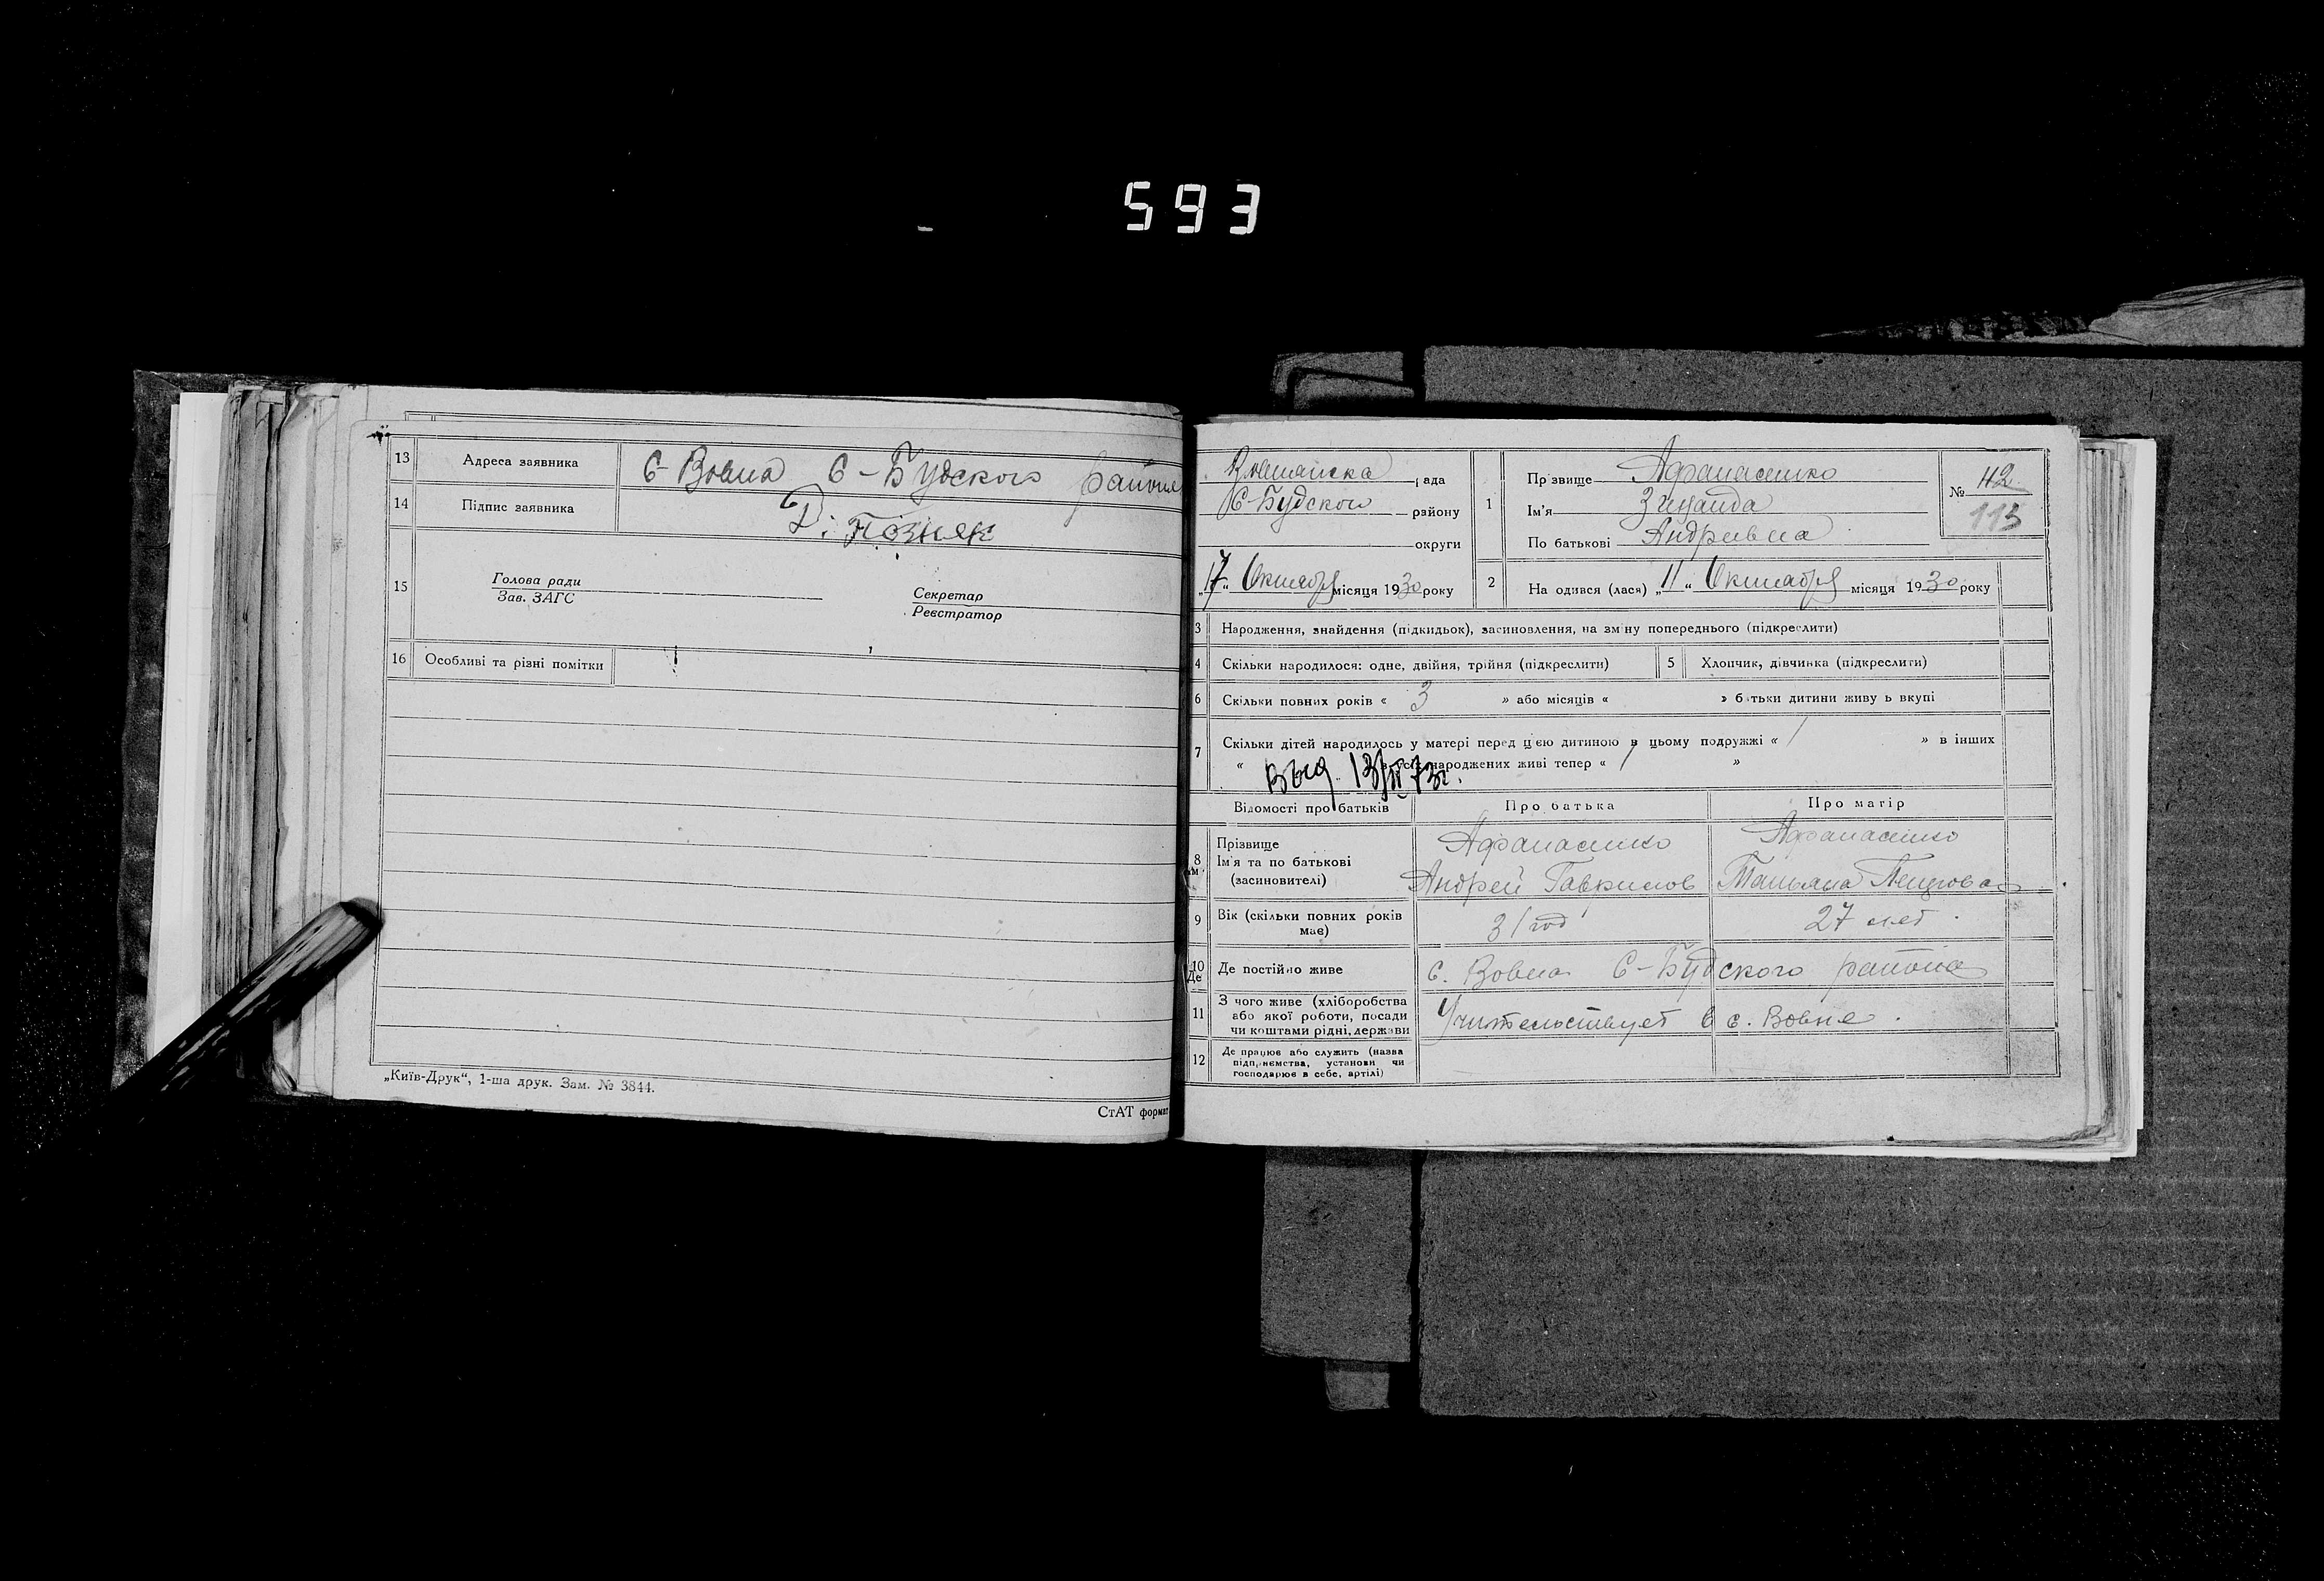 593
13 Адреса заявника С-Вовна С-Будского района
14 Підпис заявника Д. Позняк
15 Голова ради
Зав. ЗАГС
Секретар
Реєстратор
16 Особливі та різні помітки
„Київ-Друк“, 1-ша друк. Зам. № 3844.
СтАТ формат
рада
С-Будского району
округи
„17“ Октября місяця 1930 року
1 Прізвище Афанасенко
Ім'я Зинаида
По батькові Андреевна
№ 42
113
2 На одився (лася) „11“ Октября місяця 1930 року
3 Народження, знайдення (підкидьок), засиновлення, на зміну попереднього (підкреслити)
4 Скільки народилося: одне, двійня, трійня (підкреслити)
5 Хлопчик, дівчинка (підкреслити)
6 Скільки повних років « 3 » або місяців « » батьки дитини живуь вкупі
7 Скільки дітей народилось у матері перед цією дитиною в цьому подружжі « / » в інших
« з усіх народжених живі тепер « / »
Выд. 13/ 73г.
Відомості про батьків
Про батька
Про матір
8 Прізвище
Ім'я та по батькові
(засиновителі)
Афанасенко
Андрей Гаврилов
Афанасенко
Татьяна Петровая
9 Вік (скільки повних років
має)
31 год
27 лет
10 Де постійно живе с. Вовна С-Будского района
11 З чого живе (хліборобства
або якої роботи, посади
чи коштами рідні, держави
Учительствует в с. Вовне.
12 Де працює або служить (назва
підприємства, установи чи
господарює в себе, артілі)